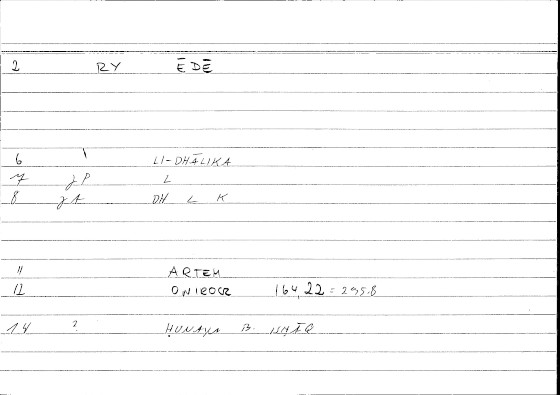 2 RY ĒDĒ
6 LI-DHĀLIKA
7 L
8 DH L K
11 ARTEM
12 ONIROCR 164,22 = 295.8
14 ? ḤUNAYN B. ISḤĀQ